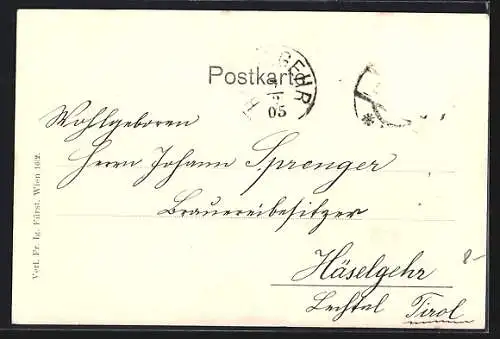 Postkarte
GEHR
05
Wohlgeboren
Herrn Johann Sprenger
Brauereibesitzer
Häselgehr
Lechtal Tirol
8-
Verl. Fr. Ig. Fürst. Wien 162.